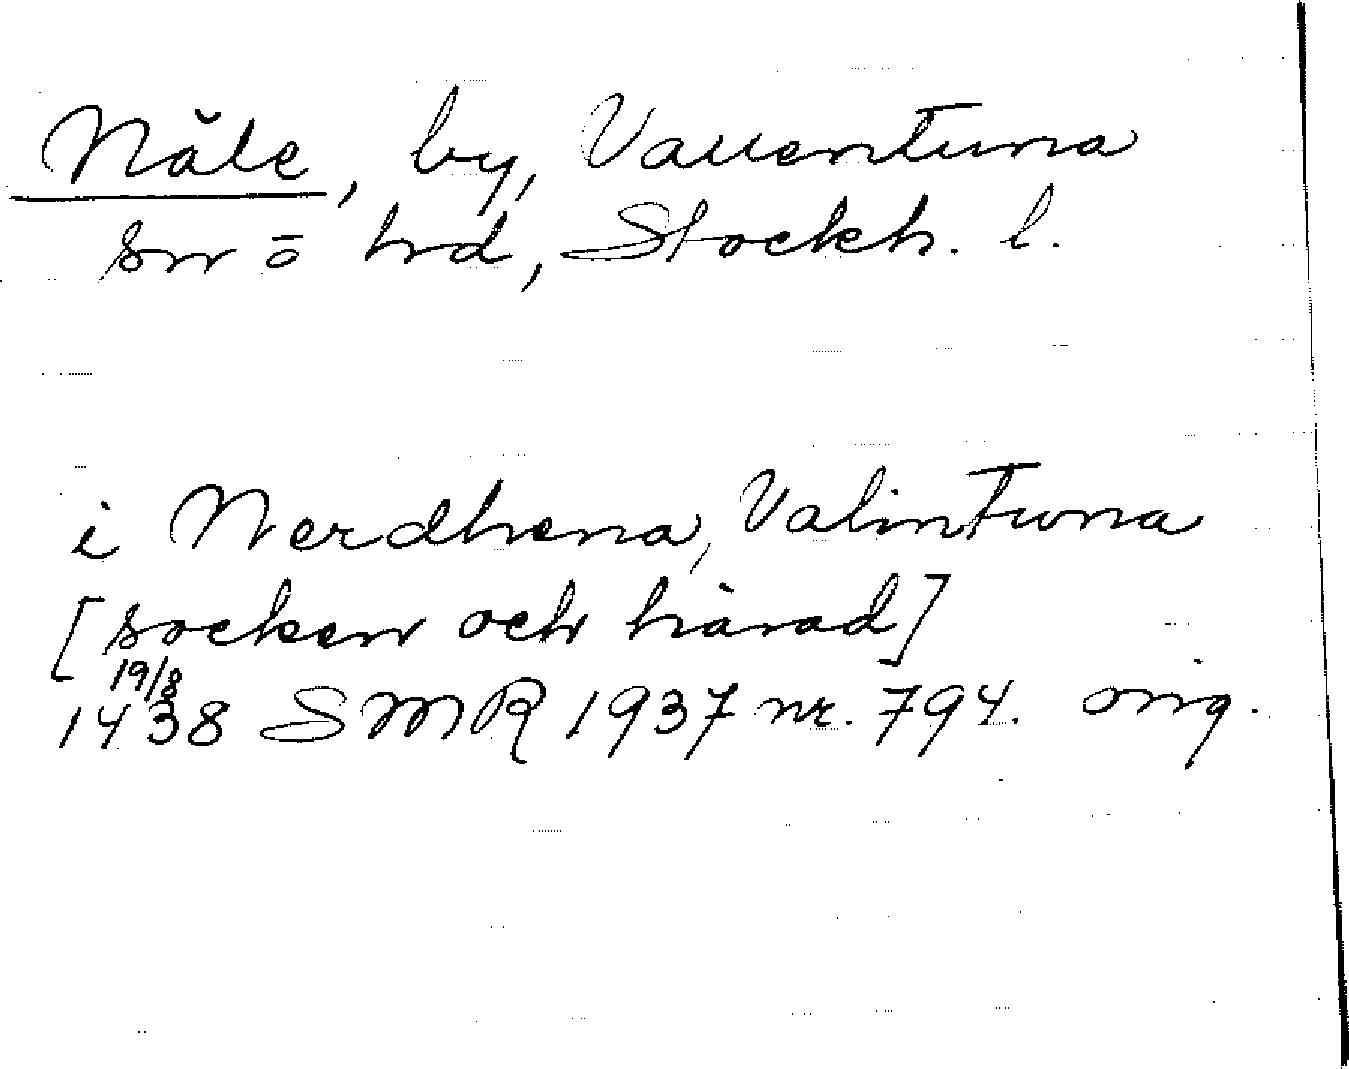 Nåle, by, Vallentuna
sn ō hd, Stockh. l.
i Nerdhena, Valintuna
[socken och härad]
19/8
1438 SMR 1937 nr. 794. orig.